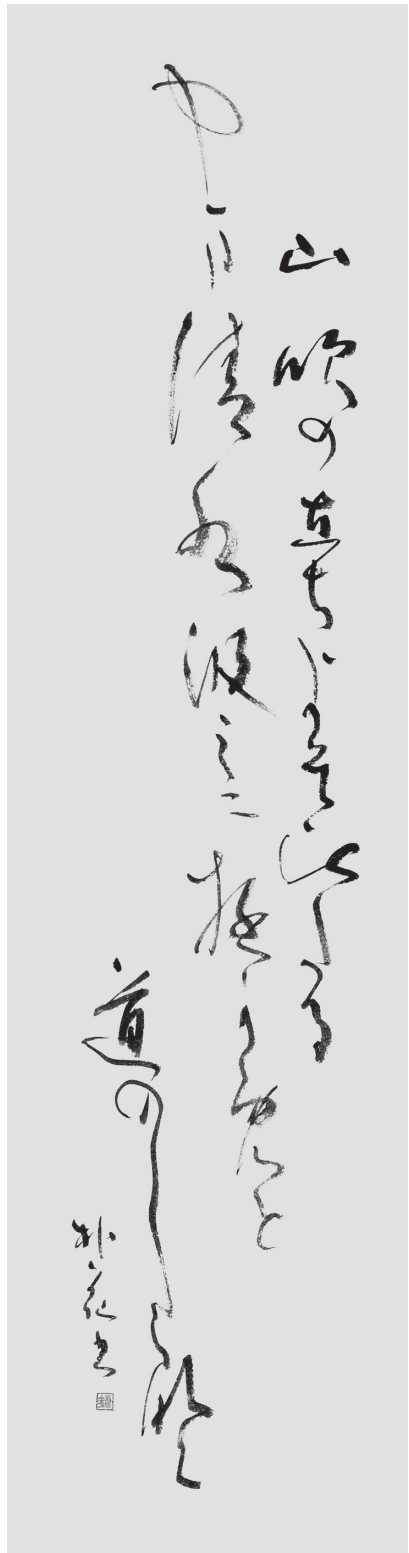 山吹の立ちよそひたる
やま清水汲みに遊かめど
道のしらなく